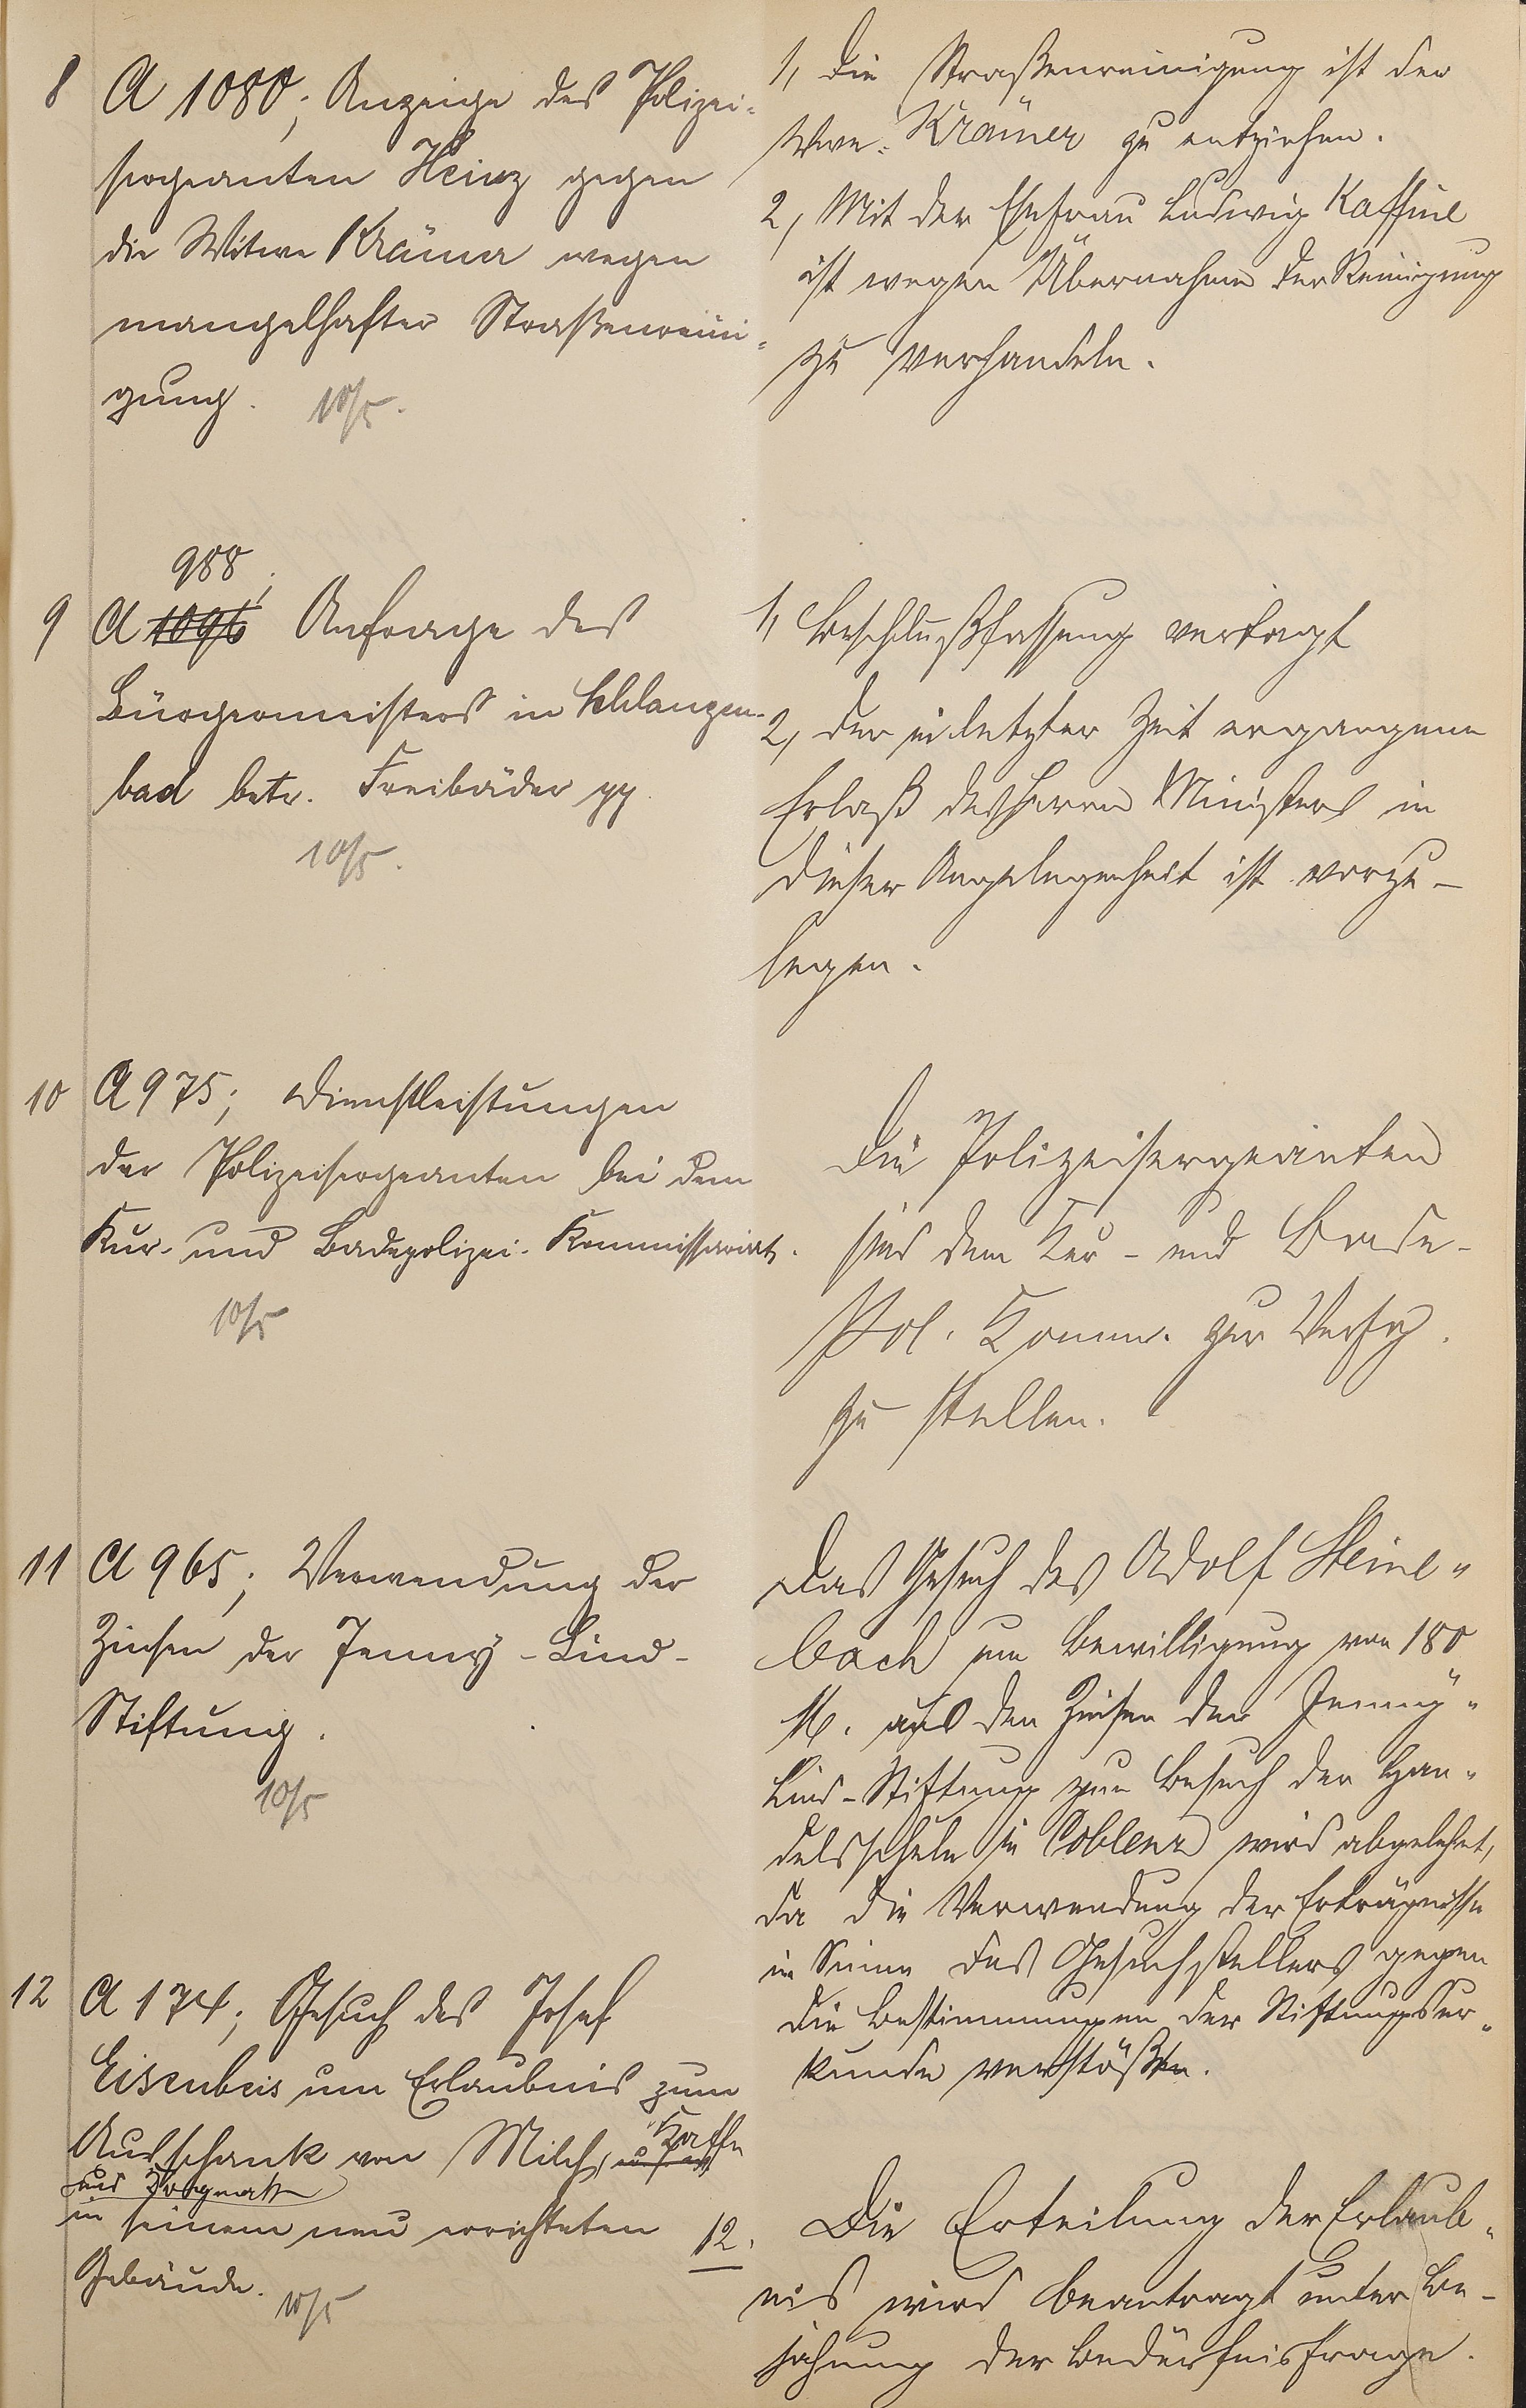 8 A 1080; Anzeige des Polizei-
sergeanten Heinz gegen
die Witwe Krämer wegen
mangelhafter Straßenreini-
gung. 10/5.
1, Die Straßenreinigung ist der
Wwe. Krämer zu entziehen.
2, Mit der Ehefrau Ludwig Kaffine
ist wegen Übernahme der Reinigung
zu verhandeln.
988;
9 A 1096 Anfrage des
Bürgermeisters in Schlangen-
bad betr. Freibäder pp.
10/5.
1, Beschlußfassung vertagt
2, Der in letzter Zeit ergangene
Erlaß des Herrn Ministers in
dieser Angelegenheit ist vorzu-
legen.
10 A 975; Dienstleistungen
der Polizeisergeanten bei dem
Kur- und Badepolizei-Kommissariat.
10/5
Die Polizeisergeanten
sind dem Kur- und Bade-
Pol. Komm. zur Verfg.
zu stellen.
11 A 965; Verwendung der
Zinsen der Jenny-Lind-
Stiftung.
10/5
Das Gesuch des Adolf Steine-
bach um Bewilligung von 180
M. aus den Zinsen der Jenny-
Lind-Stiftung zum Besuch der Han-
delsschule in Coblenz wird abgelehnt,
da die Verwendung der Erträgnisse
im Sinne des Gesuchstellers gegen
die Bestimmungen der Stiftungsur-
kunde verstößt.
12 A 174; Gesuch des Josef
Eisenbeis um Erlaubnis zum
Ausschank von Milch, Kaffe
und
in seinem neu errichteten
Gebäude. 10/5
12. Die Erteilung der Erlaub-
nis wird beantragt unter Be-
jahung der Bedürfnisfrage.